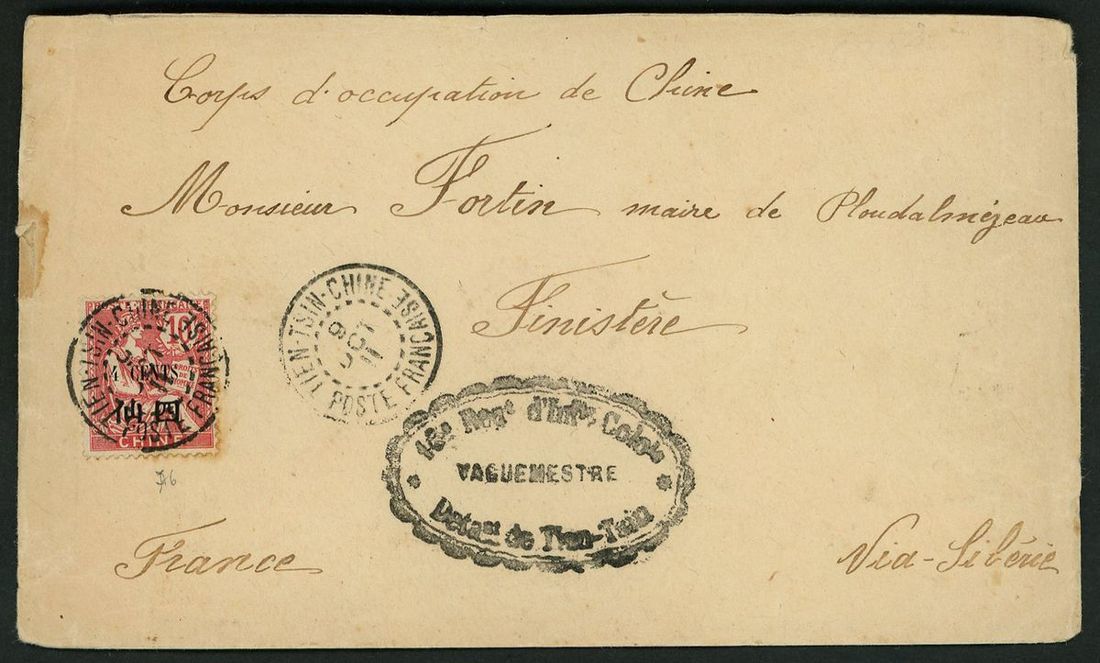 Corps d'occupation de Chine
Monsieur Fortin maire de Ploudalmézeau
Finistère
TIEN-TSIN-CHINE
9
OCT
11
POSTE FRANÇAISE
TIEN-TSIN-CHINE
POSTE FRANÇAISE
10
4 CENTS
分四
CHINE
Regt d'Infie Colole
VAGUEMESTRE
Detact de Tien-Tsin
France
Via-Sibérie